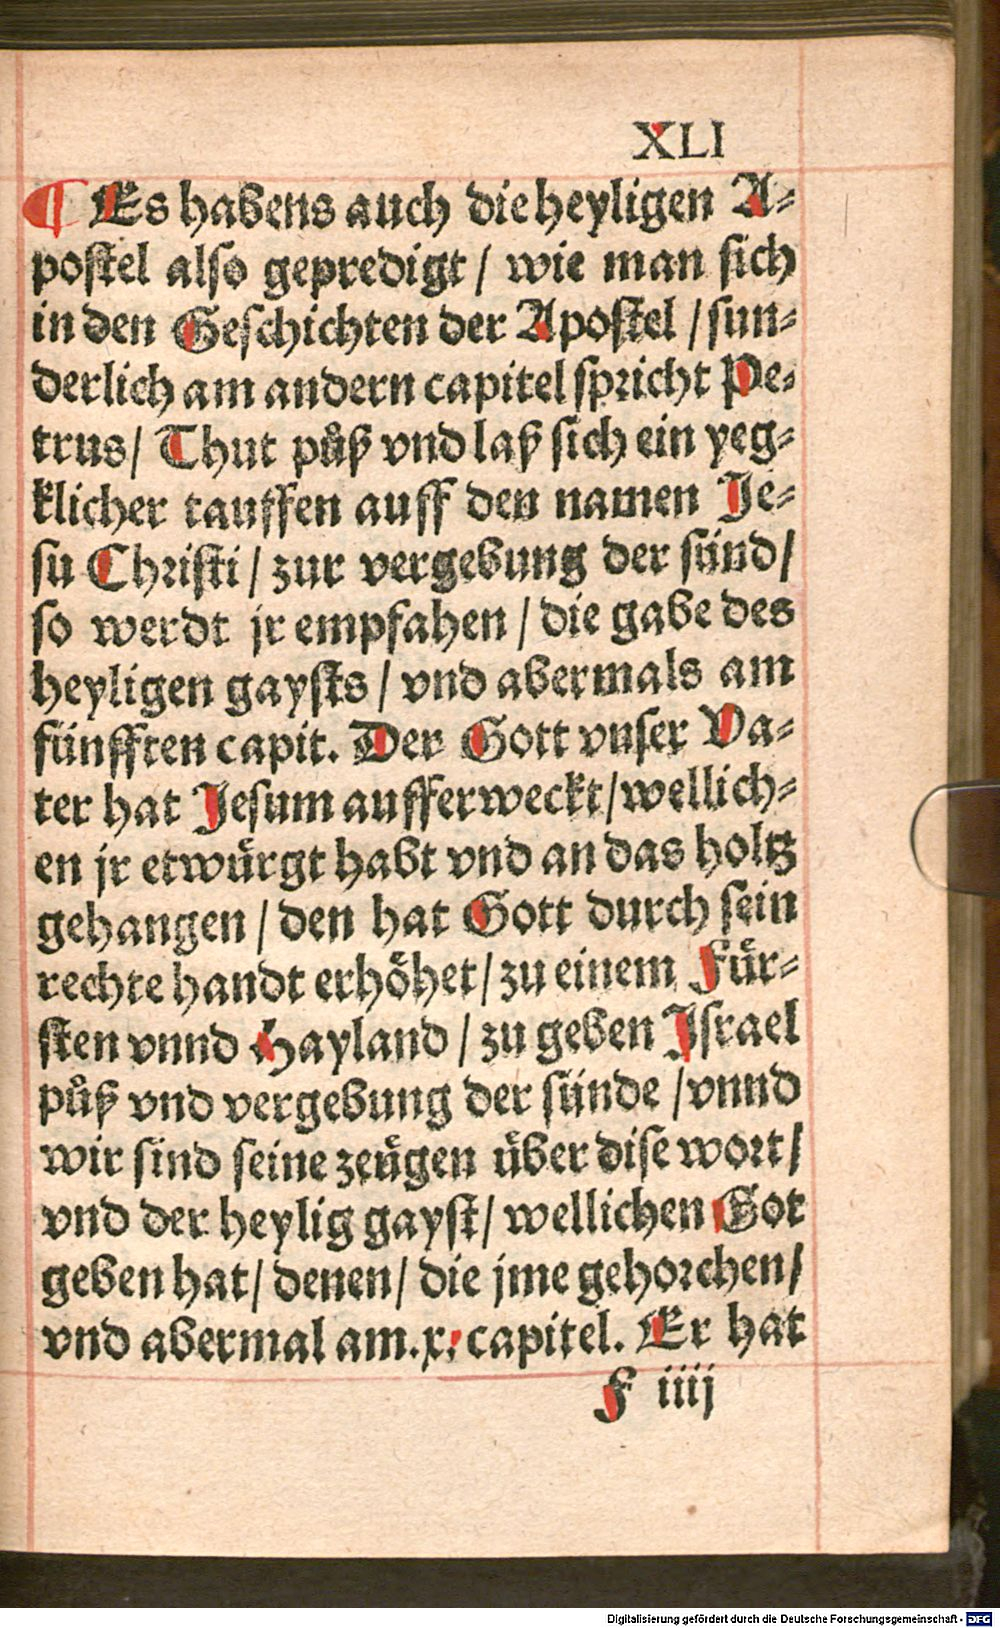 XLI
¶ Es habens auch die heyligen A-
postel also gepredigt / wie man sich
in den Geschichten der Apostel / sun-
derlich am andern capitel spricht Pe-
trus / Thut půß vnd laß sich ein yeg-
klicher tauffen auff den namen Je-
su Christi / zur vergebung der sünd /
so werdt jr empfahen / die gabe des
heyligen gaysts / vnd abermals am
fünfften capit. Der Gott vnser Va-
ter hat Jesum aufferweckt / wellich-
en jr etwürgt habt vnd an das holtz
gehangen / den hat Gott durch sein
rechte handt erhöhet / zu einem Für-
sten vnnd Hayland / zu geben Israel
půß vnd vergebung der sünde / vnnd
wir sind seine zeügen über dise wort /
vnd der heylig gayst / wellichen Got
geben hat / denen / die jme gehorchen /
vnd abermal am .x. capitel. Er hat
F iiij
Digitalisierung gefördert durch die Deutsche Forschungsgemeinschaft - DFG